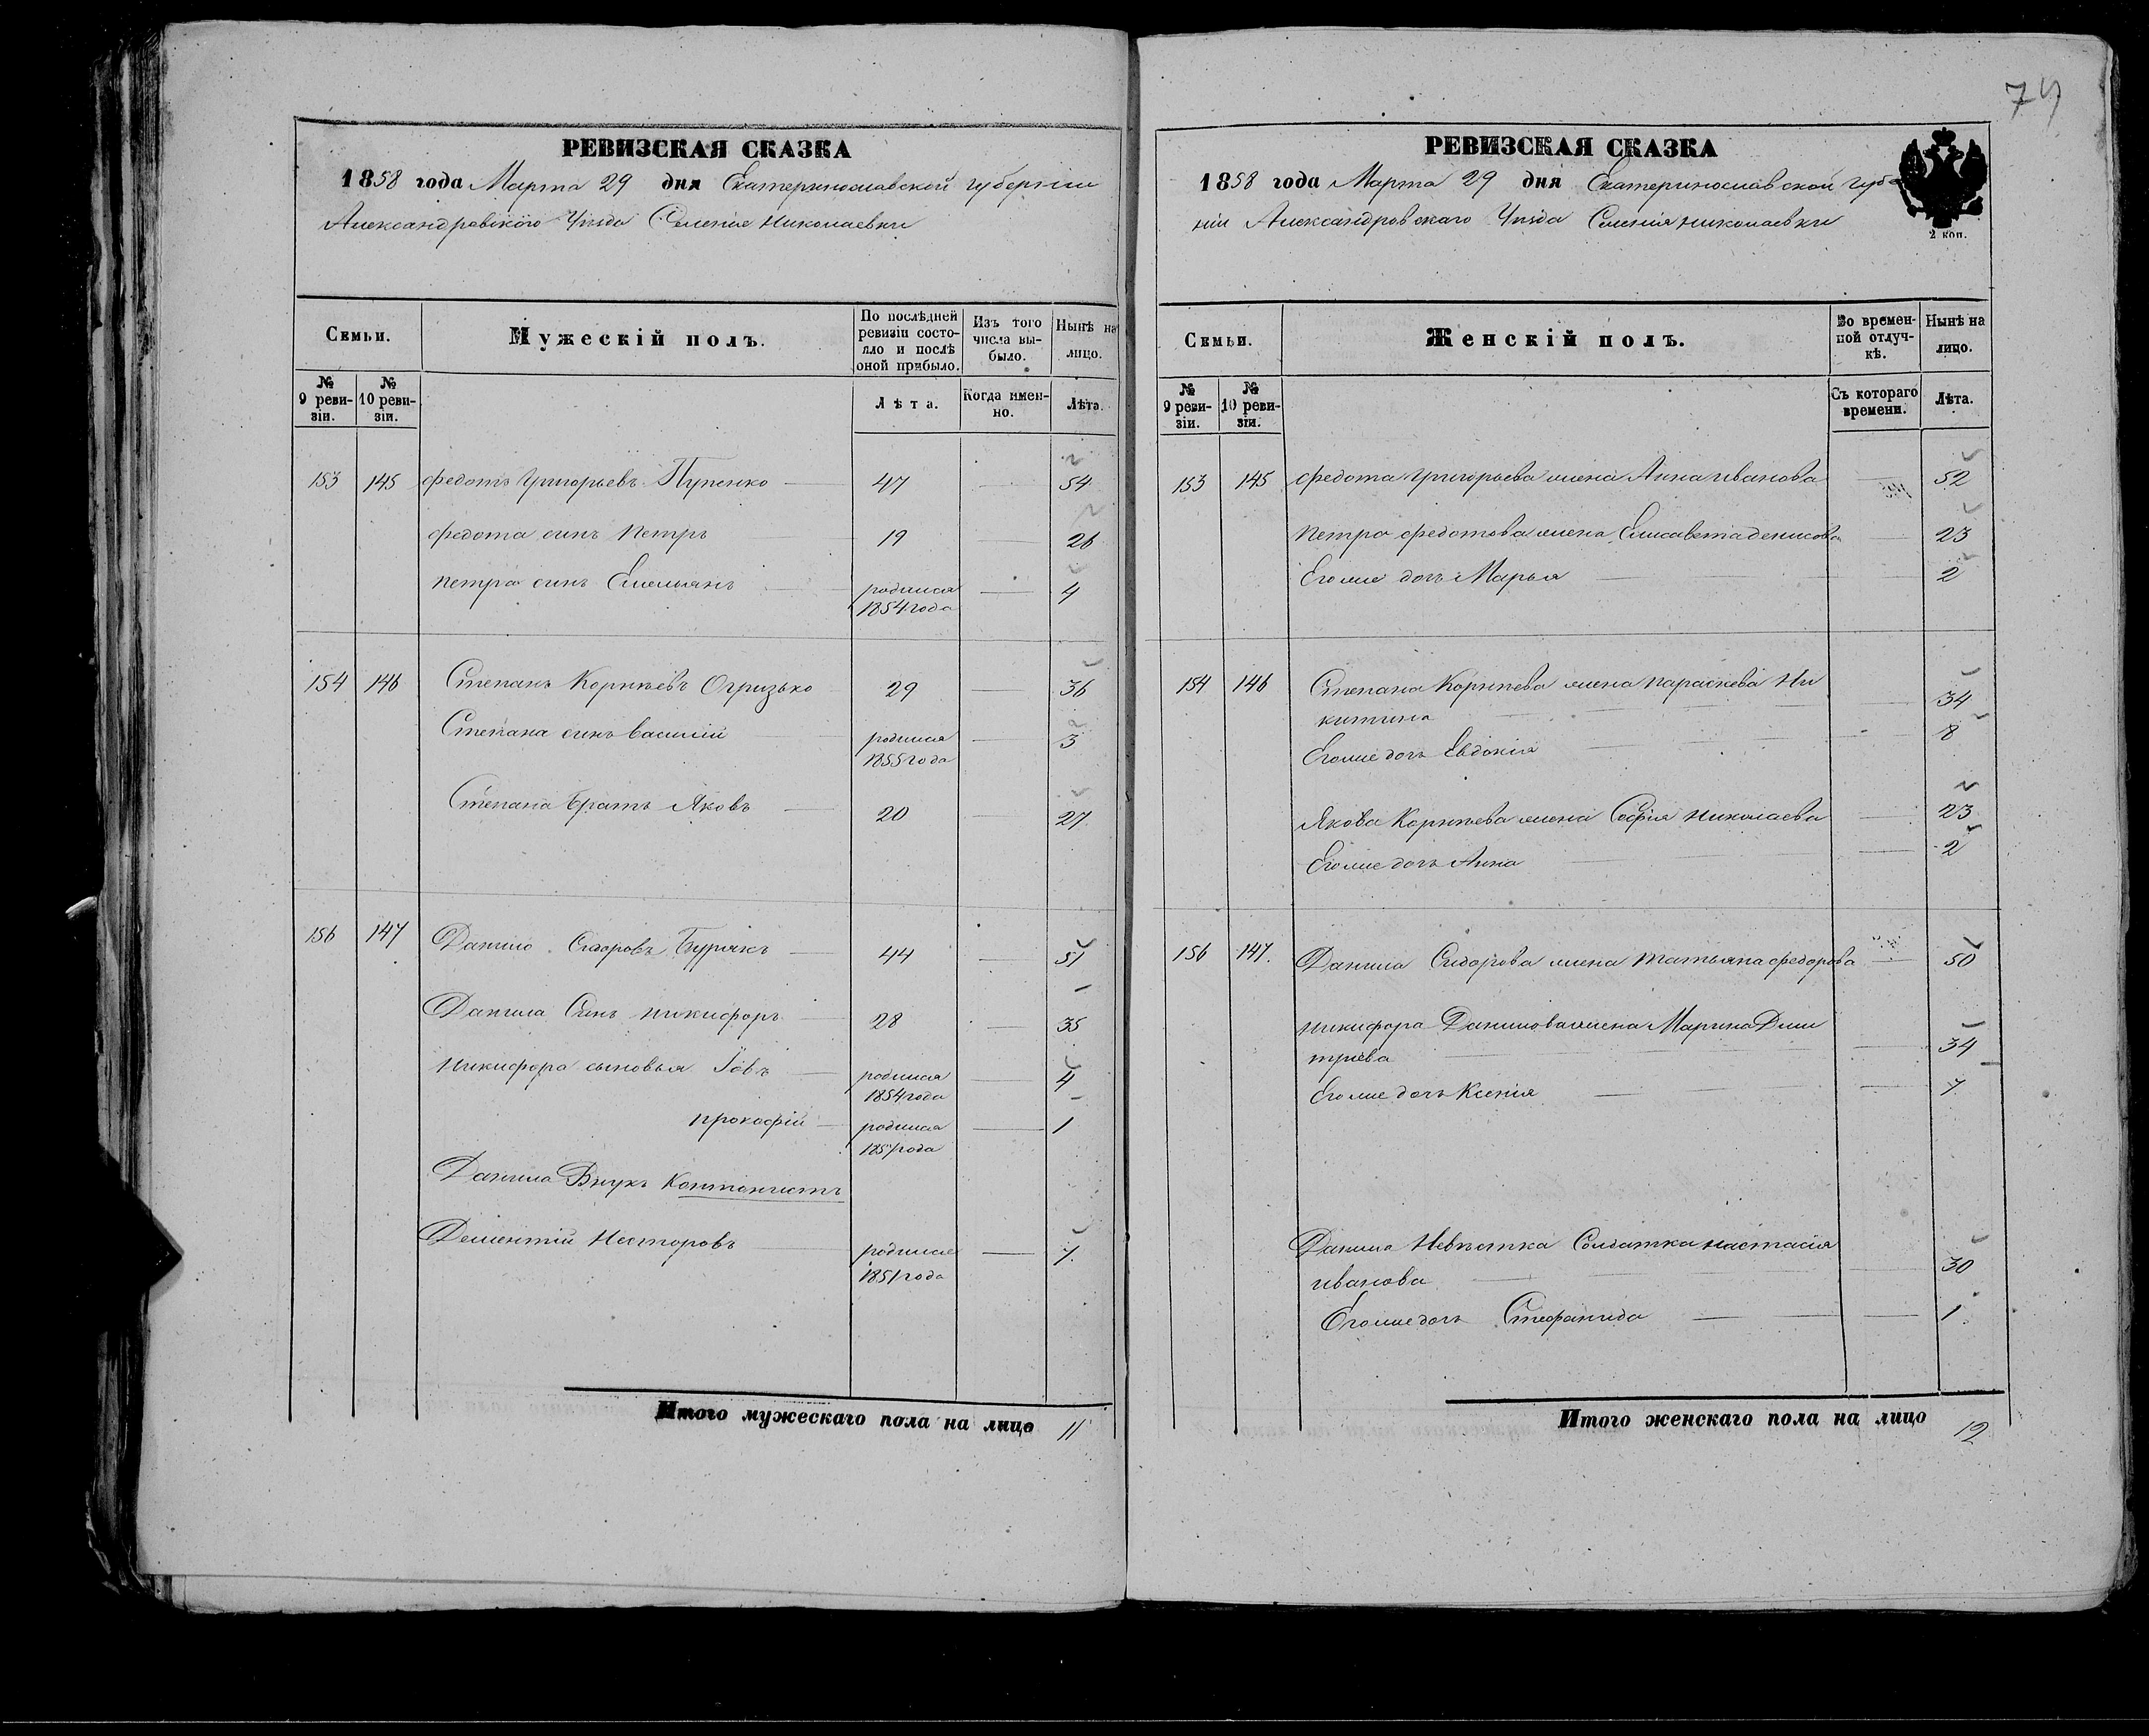 74
РЕВИЗСКАЯ СКАЗКА
1858 года Марта 29 дня Екатеринославской губернии
Александровского Уѣзда Селеніе николаевки
Семьи. Мужескій полъ. По послѣдней ревизіи состояло и послѣ оной прибыло. Изъ того числа выбыло. Нынѣ на лицо.
№ 9 ревизіи. № 10 ревизіи. Лѣта. Когда именно. Лѣта.
153 145 федотъ григорьевъ 47 54
федота синъ петръ 19 26
петра синъ Емельянъ родился 1854 года 4
154 146 Степанъ Корнѣевъ Огризько 29 36
Степана синъ василій родился 1855 года 3
Степана Братъ Яковъ 20 27
156 147 Данило Сидоровъ Бурякъ 44 51
Данила Синъ никифоръ 28 35
никифора сыновья Іовъ родился 1854 года 4
прокофій родился 1857 года 1
Данила Внукъ Кантонистъ
Дементій Несторовъ родился 1851 года 7.
Итого мужескаго пола на лицо 11
РЕВИЗСКАЯ СКАЗКА
1858 года Марта 29 дня Екатеринославской губе
ніи Александровскаго Уѣзда Селенія николаевки
2 коп.
Семьи. Женскій полъ. Во временной отлучкѣ. Нынѣ на лицо.
№ 9 ревизіи. № 10 ревизіи. Съ котораго времени. Лѣта.
153 145 федота григорьева жена Анна иванова 52
петра федотова жена Елисавета денисова 23
Его же дочь Марья 2
154 146 Степана Корнѣева жена параскева Ни
китина 34
Его же дочь Евдокія 8
Якова Корнѣева жена Софія николаева 23
Его же дочь Анна 2
156 147. Данила Сидорова жена татьяна федорова 50
никифора Данилова жена Марина Дми
тріева 34
Его же дочь Ксенія 7
Данила Невѣстка Солдатка настасія
иванова 30
Его же дочь Стефанида 1.
Итого женскаго пола на лицо 12